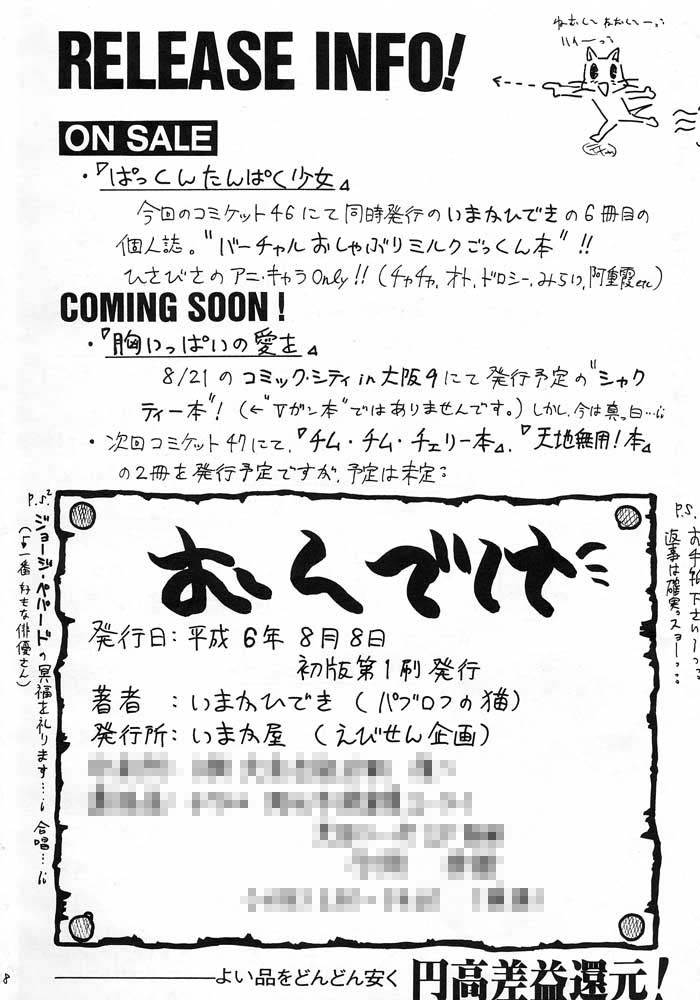 RELEASE INFO!
ON SALE
・『ぱっくんたんぱく少女』
今回のコミケット46にて同時発行のいまかひできの6冊目の
個人誌。"バーチャルおしゃぶりミルクごっくん本"!!
ひさびさのアニ・キャラOnly!!(チャチャ,オト,ドロシー,みらい,阿重霞etc)
COMING SOON!
・『胸いっぱいの愛を』
8/21のコミック・シティin大阪9にて発行予定の"シャク
ティー本"!(←"Vガン本"ではありませんです。)しかし、今は真っ白…
・次回コミケット47にて、『チム・チム・チェリー本』、『天地無用!本』
の2冊を発行予定ですが、予定は未定:
P.S.
お手紙下さい〜っ
返事は確実っスョーっ
P.S².
ジョージ・ペパードの冥福を祈ります… 合唱…
(一番好きな俳優さん)
おくづけ
発行日:平成6年8月8日
初版第1刷発行
著者 :いまかひでき(パブロフの猫)
発行所:いまか屋 (えびせん企画)
8
よい品をどんどん安く 円高差益還元!